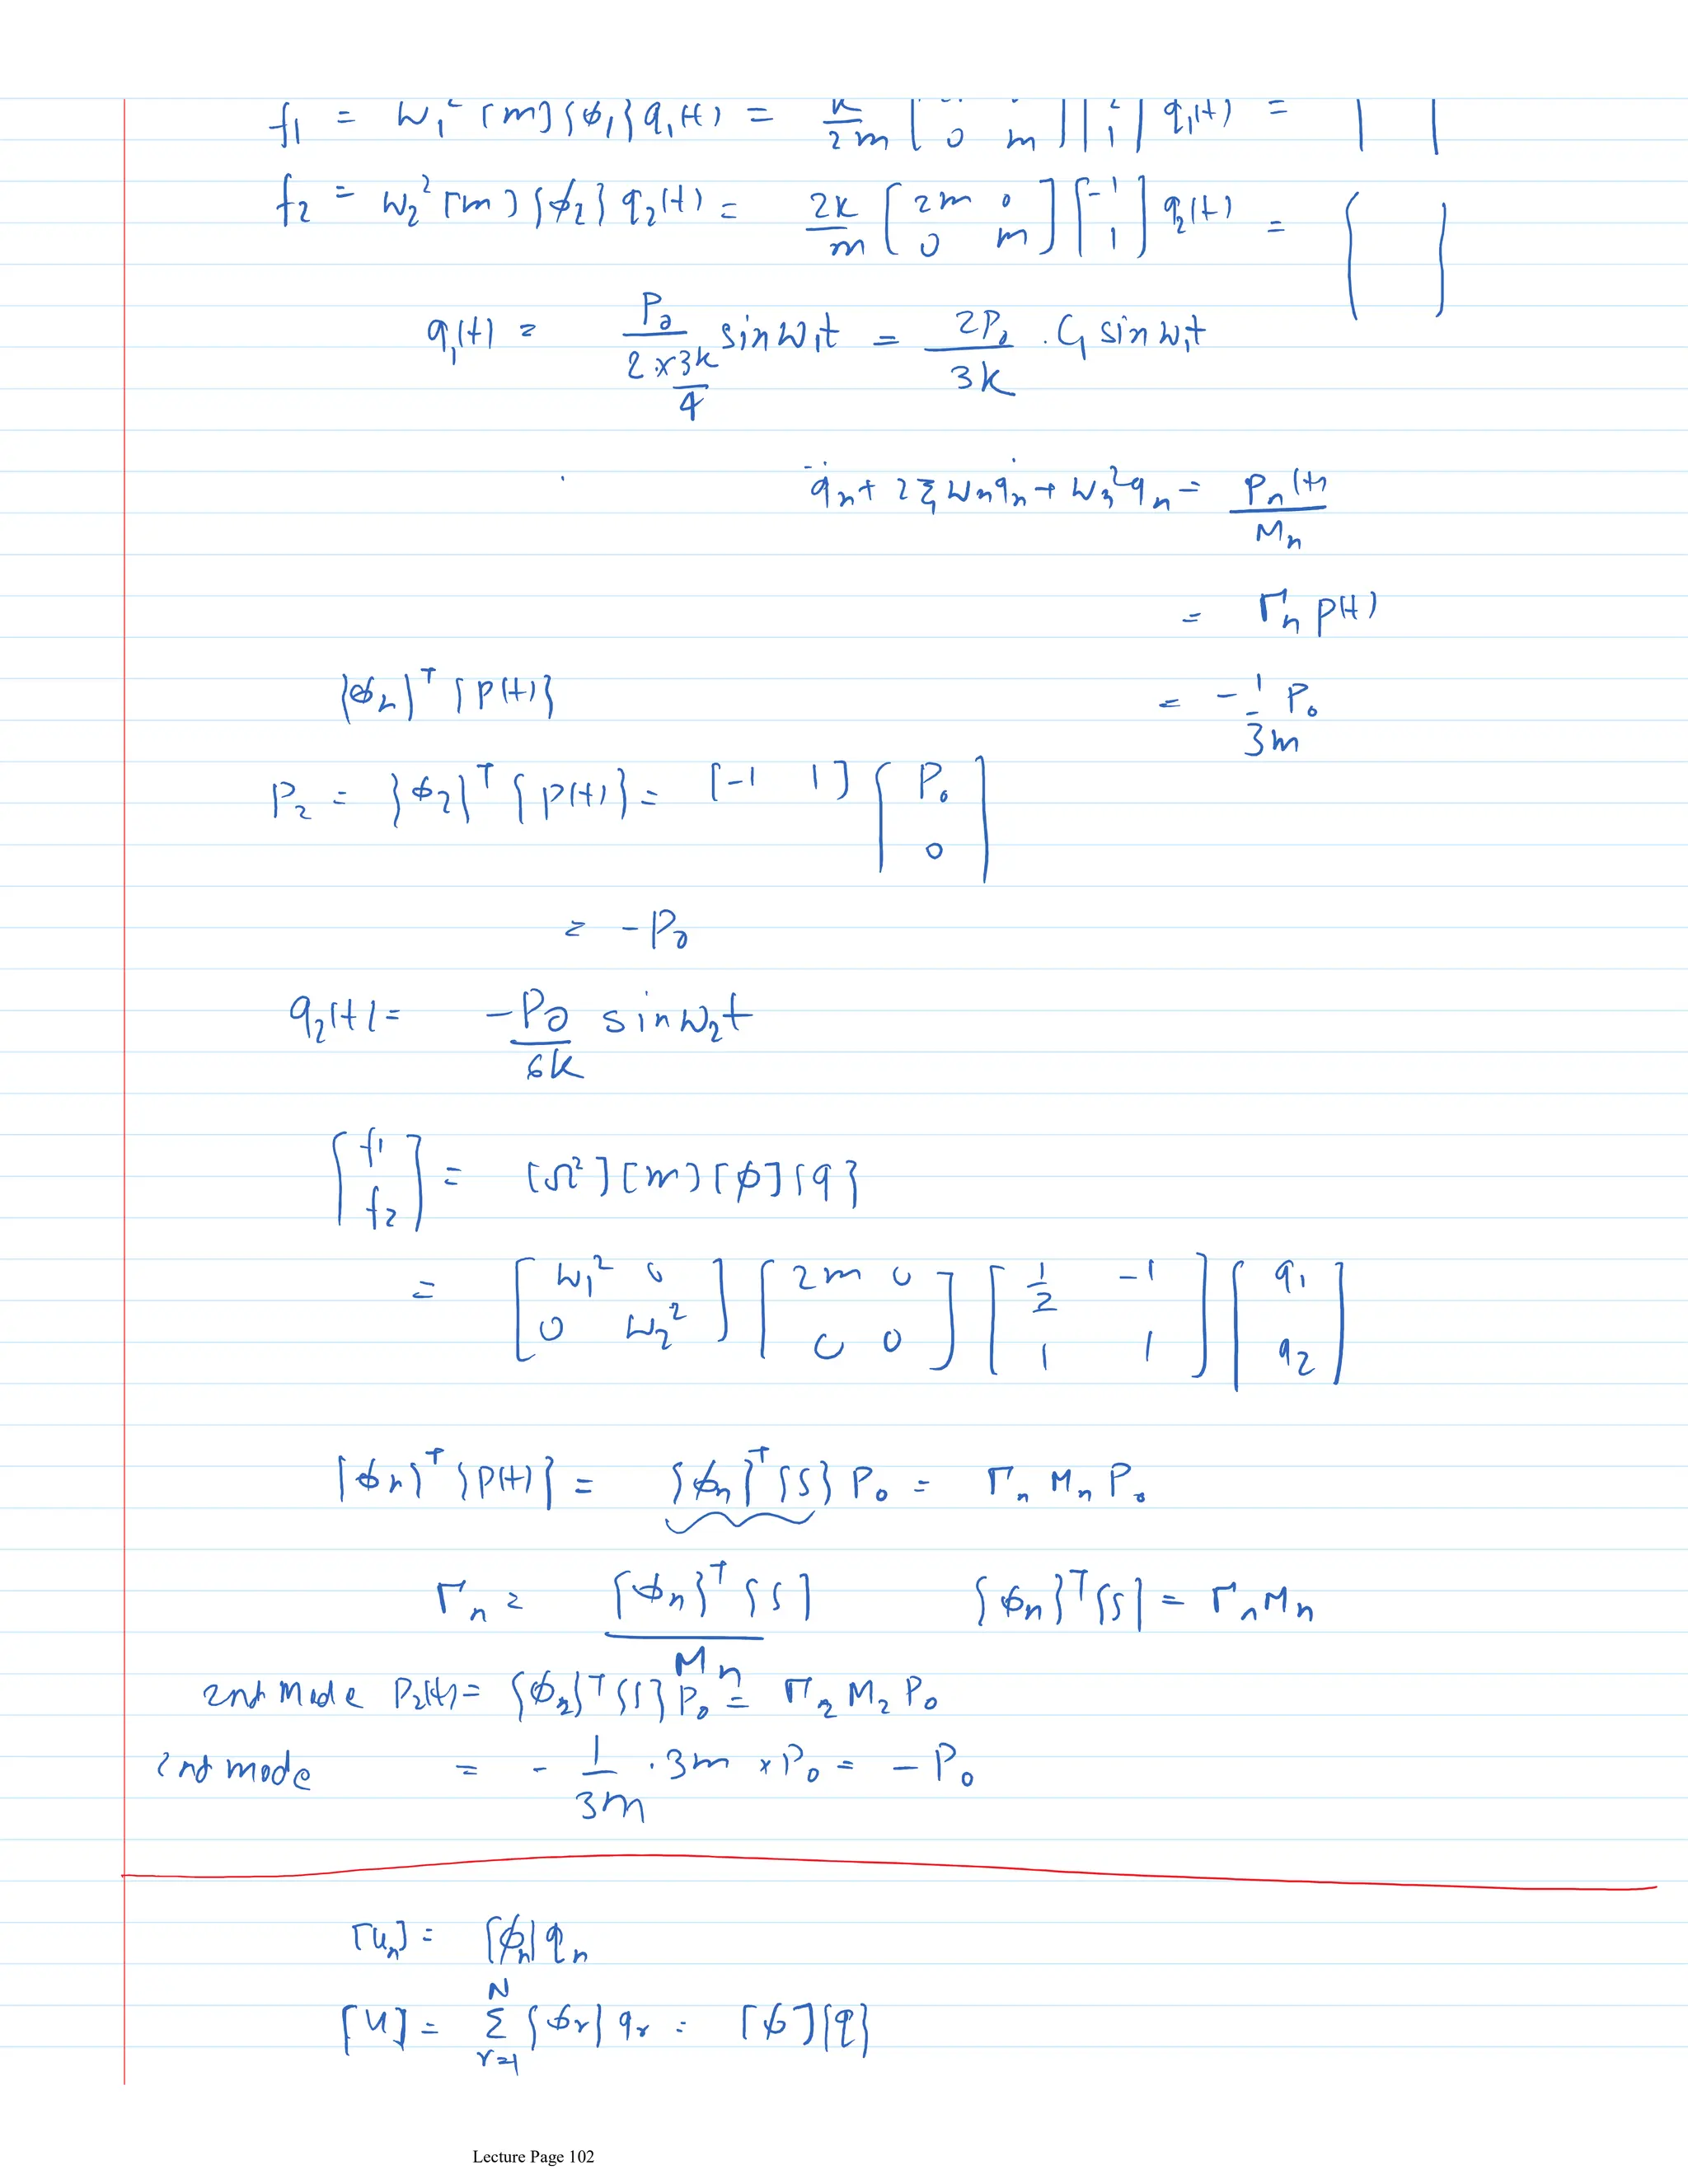 f1 = w1² [m]{φ1} q1(t) = k/2m [ 0 m ] [ 1 ] q1(t) = [ ]
f2 = w2² [m]{φ2} q2(t) = 2k/m [2m 0; 0 m] [-1; 1] q2(t) = { }
q1(t) = P0/(2×3k/4) sin w1t = 2P0/3k · C1 sin w1t
q̈n + 2ξ wn q̇n + wn² qn = Pn(t)/Mn
= Γn p(t)
{φn}ᵀ {p(t)}
= -1/3m P0
P2 = {φ2}ᵀ {p(t)} = [-1 1] [P0; 0]
= -P0
q2(t) = -P0/6k sin w2t
[f1; f2] = [Ω²][m][φ]{q}
= [w1² 0; 0 w2²] [2m 0; 0 0] [1/2 -1; 1 1] [q1; q2]
{φn}ᵀ {p(t)} = {φn}ᵀ {s} P0 = Γn Mn P0
Γn = {φn}ᵀ {s}/Mn {φn}ᵀ {s} = Γn Mn
2nd mode P2(t) = {φ2}ᵀ {s} P0 = Γ2 M2 P0
2nd mode = - 1/3m · 3m × P0 = -P0
[un] = {φn} qn
[u] = Σ_{r=1}^{N} {φr} qr = [φ]{q}
Lecture Page 102